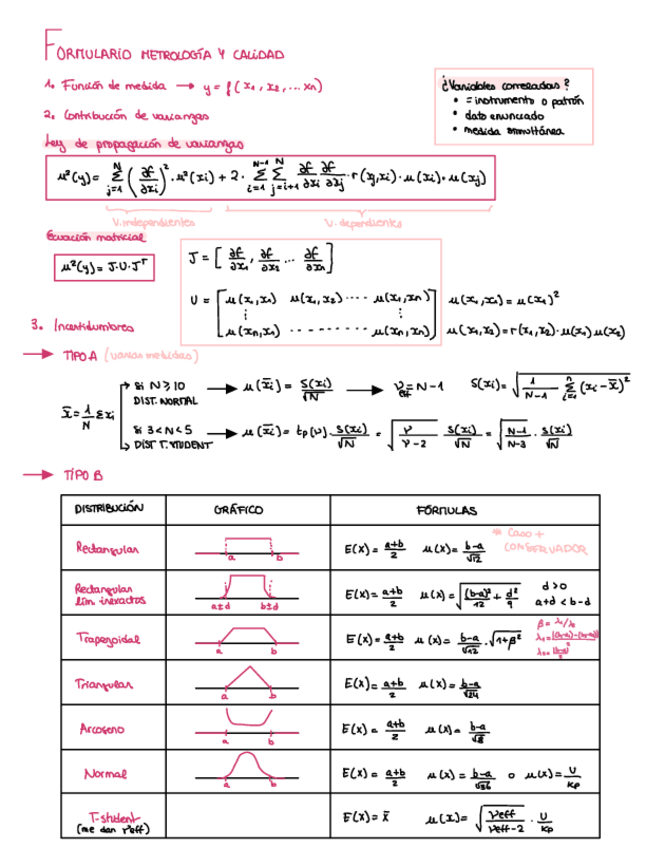 FORMULARIO METROLOGÍA Y CALIDAD
1. Función de medida → y = f(x1, x2, ... xn)
¿Variables correladas?
• = instrumento o patrón
• dato enunciado
• medida simultánea
2. Contribución de varianzas
Ley de propagación de varianzas
u²(y) = Σ_{j=1}^{N} (∂f/∂xi)² · u²(xi) + 2 · Σ_{i=1}^{N-1} Σ_{j=i+1}^{N} ∂f/∂xi ∂f/∂xj · r(xj,xi) · u(xi) · u(xj)
V. independientes V. dependientes
Ecuación matricial
u²(y) = J·U·J^T
J = [∂f/∂x1, ∂f/∂x2 ... ∂f/∂xn]
U = [u(x1,x1) u(x1,x2) ···· u(x1,xn)
⋮ ⋮
u(xn,x1) - - - - - - - - u(xn,xn)]
u(x1,x1) = u(x1)²
u(x1,x2) = r(x1,x2)·u(x1)u(x2)
3. Incertidumbres
→ TIPO A (varias medidas)
x̄ = 1/N Σxi
Si N ≥ 10 → u(x̄i) = S(xi)/√N → νeff = N-1 S(xi) = √(1/(N-1) Σ_{i=1}^{n} (xi - x̄)²)
DIST. NORMAL
Si 3 < N < 5 → u(x̄i) = tp(ν) · S(xi)/√N = √(ν/(ν-2)) S(xi)/√N = √((N-1)/(N-3)) · S(xi)/√N
DIST T. STUDENT
→ TIPO B
DISTRIBUCIÓN GRÁFICO FÓRMULAS
Rectangular a b E(X) = (a+b)/2 u(X) = (b-a)/√12 * Caso + CONSERVADOR
Rectangular lím. inexactos a±d b±d E(X) = (a+b)/2 u(X) = √((b-a)²/12 + d²/9) d>0 a+d < b-d
Trapezoidal a b E(X) = (a+b)/2 u(X) = (b-a)/√12 · √(1+β²) β = λ1/λ0
Triangular a b E(X) = (a+b)/2 u(X) = (b-a)/√24
Arcoseno a b E(X) = (a+b)/2 u(X) = (b-a)/√8
Normal a b E(X) = (a+b)/2 u(X) = (b-a)/√36 o u(X) = U/Kp
T-student (me dan νeff) E(X) = x̄ u(X) = √(νeff/(νeff-2)) · U/Kp